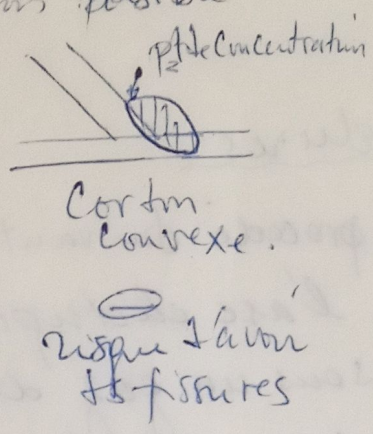 possible
pt de Concentration
Cordon
convexe.
risque d'avoir
ds fissures